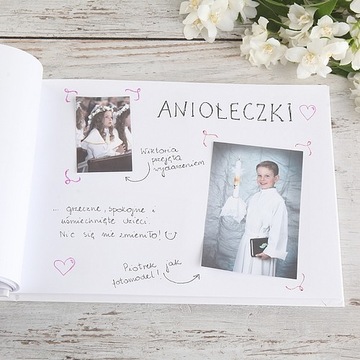 ANIOŁECZKI
Wiktoria
przejęta
wydarzeniem
... grzeczne, spokojne i
uśmiechnięte dzieci.
Nic się nie zmieniło!
Piotrek jak
fotomodel!